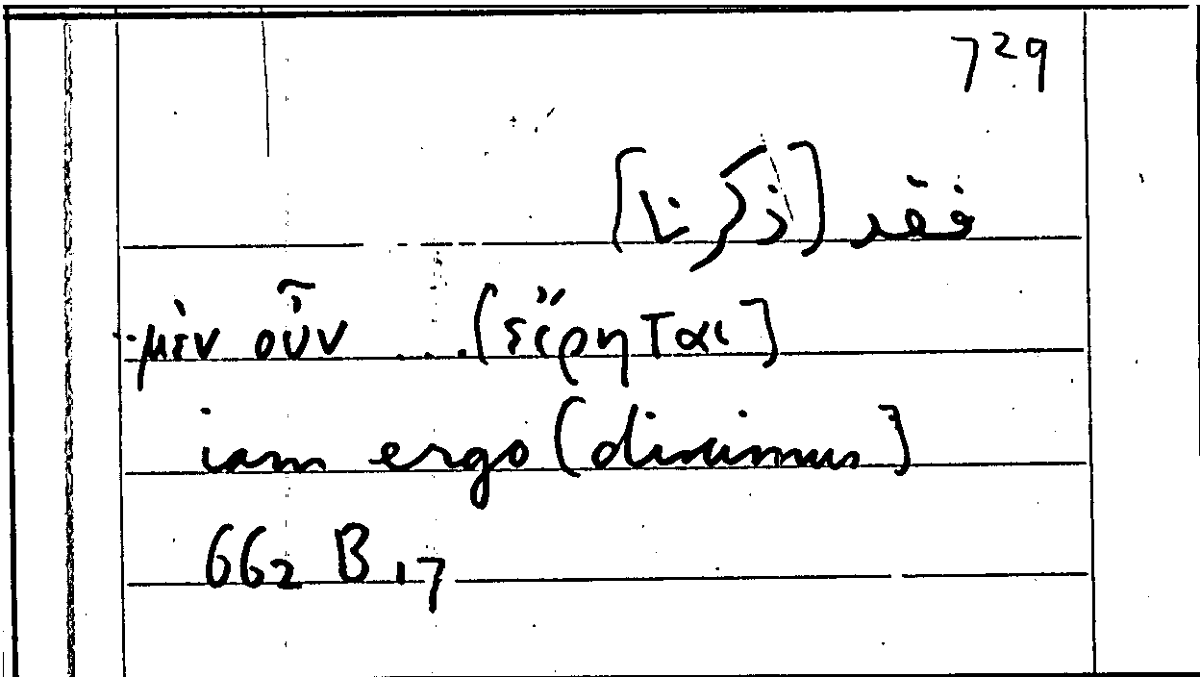 729
فقد [ذكرنا]
μὲν οὖν .... [εἴρηται]
iam ergo [diximus]
662 B 17